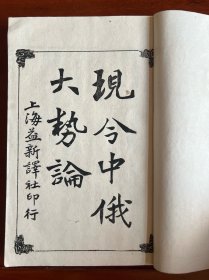 現今中俄
大勢論
上海益新譯社印行